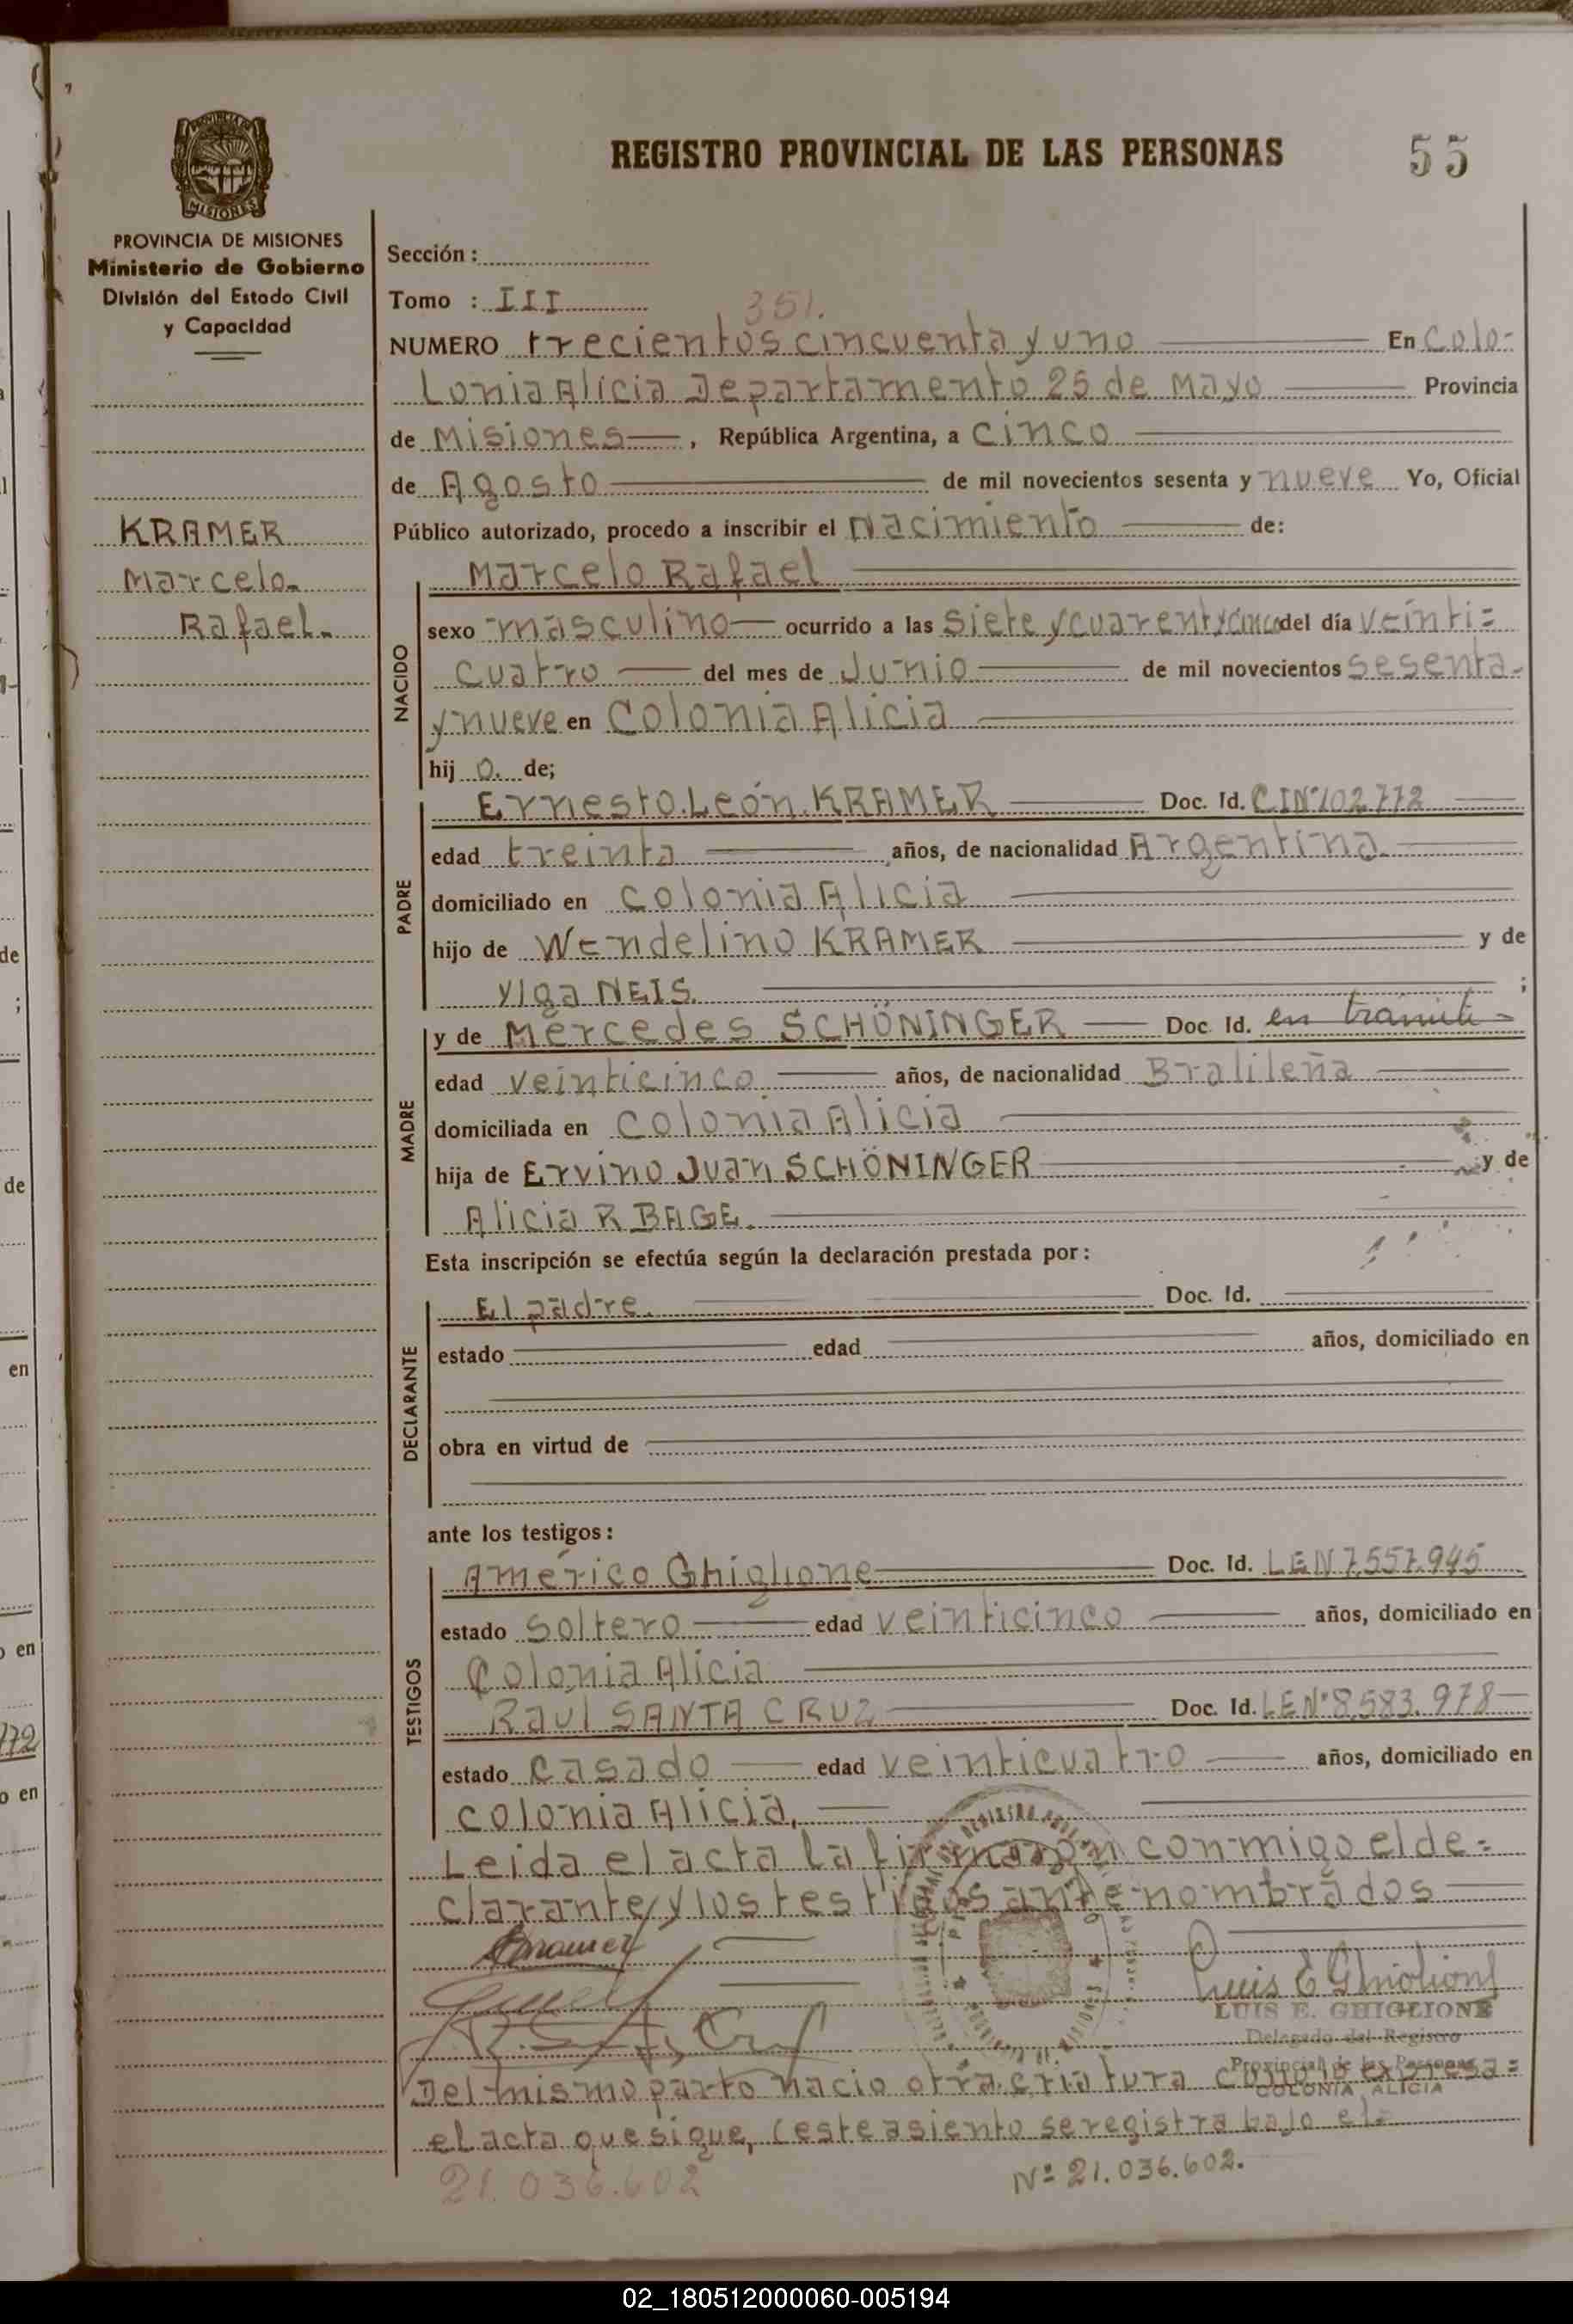 REGISTRO PROVINCIAL DE LAS PERSONAS
55
PROVINCIA DE MISIONES
Ministerio de Gobierno
División del Estado Civil
y Capacidad
KRAMER
Marcelo
Rafael.
Sección :
Tomo : III
351.
NUMERO trecientos cincuenta y uno En Colo-
Lonia Alicia Departamento 25 de Mayo Provincia
de Misiones , República Argentina, a cinco
de Agosto de mil novecientos sesenta y nueve Yo, Oficial
Público autorizado, procedo a inscribir el Nacimiento de:
NACIDO
Marcelo Rafael
sexo masculino ocurrido a las siete y cuarentycinco del día veinti=
cuatro del mes de Junio de mil novecientos sesenta-
y nueve en Colonia Alicia
hij o. de;
PADRE
Ernesto León KRAMER Doc. Id. CIN°102.772
edad treinta años, de nacionalidad Argentina.
domiciliado en Colonia Alicia
hijo de Wendelino KRAMER y de
Ylga NEIS. ;
MADRE
y de Mercedes SCHÖNINGER Doc. Id. en trámite
edad veinticinco años, de nacionalidad Bralileña
domiciliada en Colonia Alicia
hija de Ervino Juan SCHÖNINGER y de
Alicia R BAGE.
Esta inscripción se efectúa según la declaración prestada por:
DECLARANTE
El padre. Doc. Id.
estado edad años, domiciliado en
obra en virtud de
ante los testigos:
TESTIGOS
Américo Ghiglione Doc. Id. LEN 7.557.945
estado soltero edad veinticinco años, domiciliado en
Colonia Alicia
Raúl SANTA CRUZ Doc. Id. LEN° 8.583.978
estado casado edad veinticuatro años, domiciliado en
colonia Alicia,
Leida el acta la firmaron conmigo el de=
clarante y los testigos ante nombrados
Luis E Ghiglione
LUIS E. GHIGLIONE
Delegado del Registro
Provincial de las Personas
COLONIA ALICIA
Del mismo parto nacio otra criatura como lo expresa=
el acta que sigue, (este asiento se registra bajo el=
21.036.602
Nº 21.036.602.
172
02_180512000060-005194